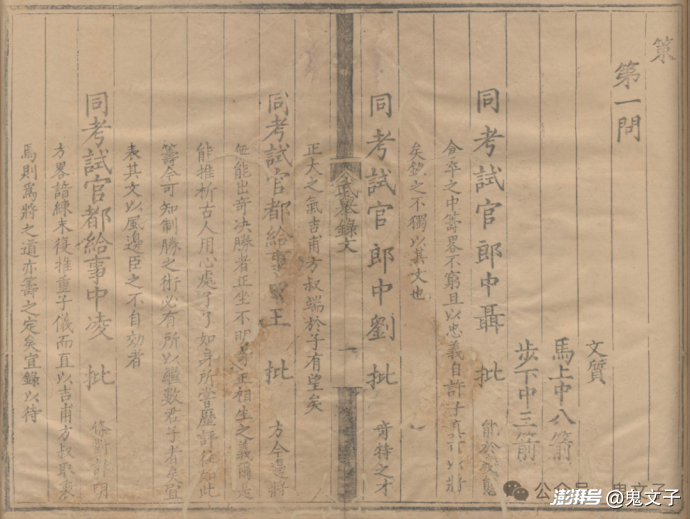 策
第一問
文質
馬上中八箭
步下中三箭
同考試官郎中聶 批 能於
卒之中籌畧不窮且以忠義自許子真可以將
矣欽之不獨以其文也
同考試官郎中劉 批 奇特之才
正大之氣吉甫方叔端於子有望矣
武舉錄文
一
同考試官都給事中王 批 方今邊將
無能出奇决勝者正坐不明奇正相生之義爾
能推析古人用心處了了如身所嘗歷詳 如此
籌今可知制勝之術必有所以繼數君子者矣宜
表其文以風邊臣之不自効者
同考試官都給事中凌 批 條對詳明
方畧諳練末後推童子儀而直以吉甫方叔取表
焉則為將之道亦籌之定矣宜錄以待
公众号 鬼文子
澎湃号 @鬼文子